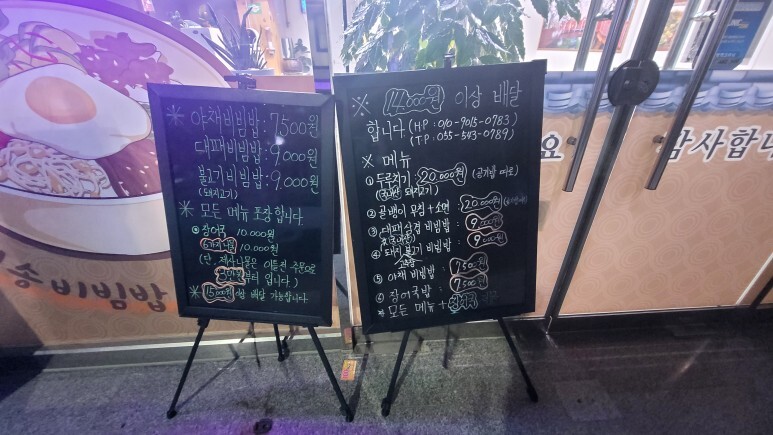 ※ 야채비빔밥 : 7500원
대패비빔밥 : 9,000원
불고기비빔밥 : 9,000원
(돼지고기)
※ 모든 메뉴 포장합니다.
장어국 10.000원
6가지나물 10.000원
(단, 제사나물은 이틀전 주문으로
부터 입니다.)
※ 15000원 배달 가능합니다
※ 원 이상 배달
합니다 (HP : 010-9015-0783)
(TP : 055-543-0789)
※ 메뉴
① 두루치기 : 20.000원 (공기밥 따로)
(국내산 돼지고기)
② 골뱅이 무침 + 소면 : 20.000원
③ 대패삼겹 비빔밥 : 9,000원
④ 돼지 불고기 비빔밥 : 9,000원
⑤ 야채 비빔밥 : 7500원
⑥ 장어국밥 : 7500원
※ 모든 메뉴 +
송비빔밥
요
감사합니